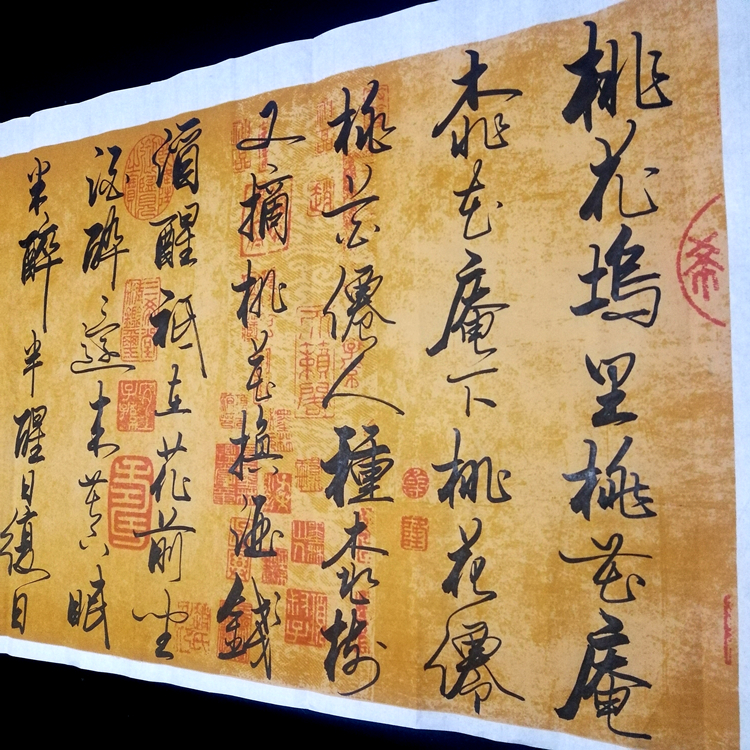 桃花塢里桃花庵
桃花庵下桃花僊
桃花僊人種桃樹
又摘桃花換酒錢
酒醒祇在花前坐
酒醉還來花下眠
半醉半醒日復日
天籟閣